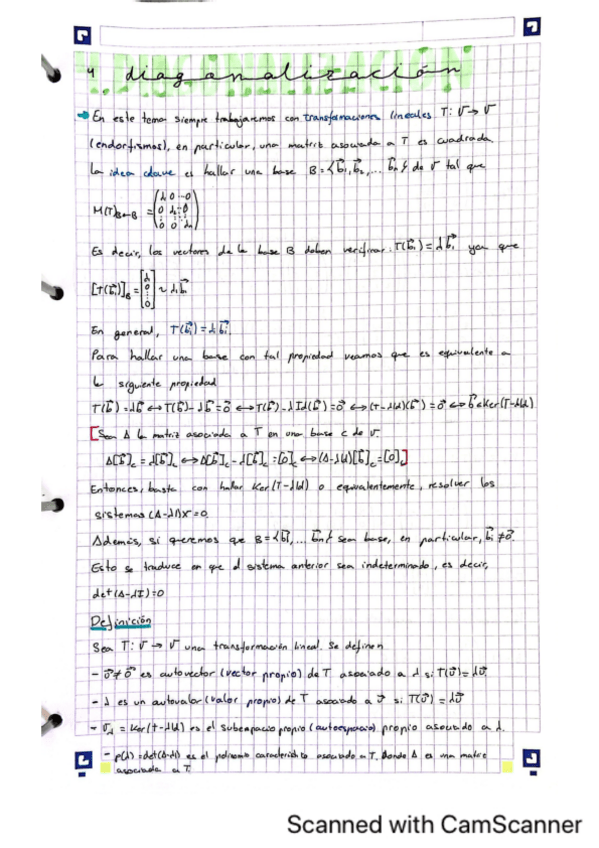 4 diagonalización
En este tema siempre trabajaremos con transformaciones lineales T: V→V
(endorfismos), en particular, una matriz asociada a T es cuadrada.
La idea clave es hallar una base B={b⃗₁, b⃗₂, ... b⃗ₙ} de V tal que
M(T)B←B = (λ₁ 0 ··· 0
0 λ₂ ··· 0
0 0 ··· λₙ)
Es decir, los vectores de la base B deben verificar: T(b⃗ᵢ) = λb⃗ᵢ ya que
[T(b⃗ᵢ)]B = [λᵢ 0 ⋮ 0] ~ λᵢb⃗ᵢ
En general, T(b⃗ᵢ) = λb⃗ᵢ
Para hallar una base con tal propiedad veamos que es equivalente a
la siguiente propiedad
T(b⃗) = λb⃗ ↔ T(b⃗) - λb⃗ = 0⃗ ↔ T(b⃗) - λId(b⃗) = 0⃗ ↔ (T-λId)(b⃗) = 0⃗ ↔ b⃗ ∈ Ker(T-λId)
[Sea A la matriz asociada a T en una base c de V.
A[b⃗]c = λ[b⃗]c ↔ A[b⃗]c - λ[b⃗]c = [0]c ↔ (A-λId)[b⃗]c = [0]c]
Entonces, basta con hallar Ker(T-λId) o equivalentemente, resolver los
sistemas (A-λI)X=0.
Además, si queremos que B={b⃗₁, ... b⃗ₙ} sea base, en particular, b⃗ᵢ ≠ 0⃗.
Esto se traduce en que el sistema anterior sea indeterminado, es decir,
det(A-λI)=0
Definición
Sea T: V→V una transformación lineal. Se definen
- v⃗≠0⃗ es autovector (vector propio) de T asociado a λ si T(v⃗) = λv⃗.
- λ es un autovalor (valor propio) de T asociado a v⃗ si T(v⃗) = λv⃗
- Vλ = Ker(T-λId) es el subespacio propio (autoespacio) propio asociado a λ.
- p(λ)=det(A-λI) es el polinomio característico asociado a T. Donde A es una matriz
asociada a T.
Scanned with CamScanner